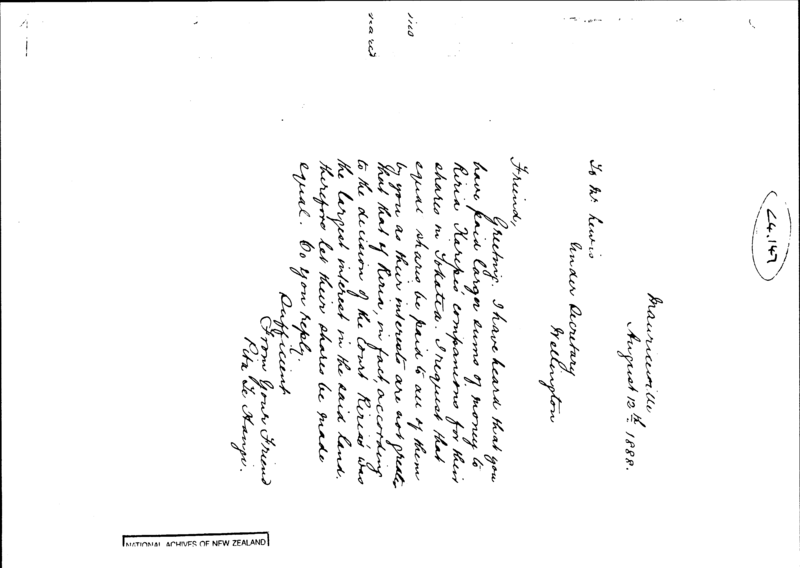 24.147
Mauriceville
August 13th 1888.
To Mr. Lewis
Under Secretary
Wellington
Friend,
Greeting. I have heard that you
have paid larger sums of money to
Riria Karepe's companions for their
shares in Tokatea. I request that
equal shares be paid to all of them
by you as their interests are not greater
than that of Riria, in fact, according
to the decision of the Court Riria's was
the largest interest in the said land.
therefore let their shares be made
equal. Do you reply.
Sufficient
From Your Friend
Pita Te
NATIONAL ACHIVES OF NEW ZEALAND